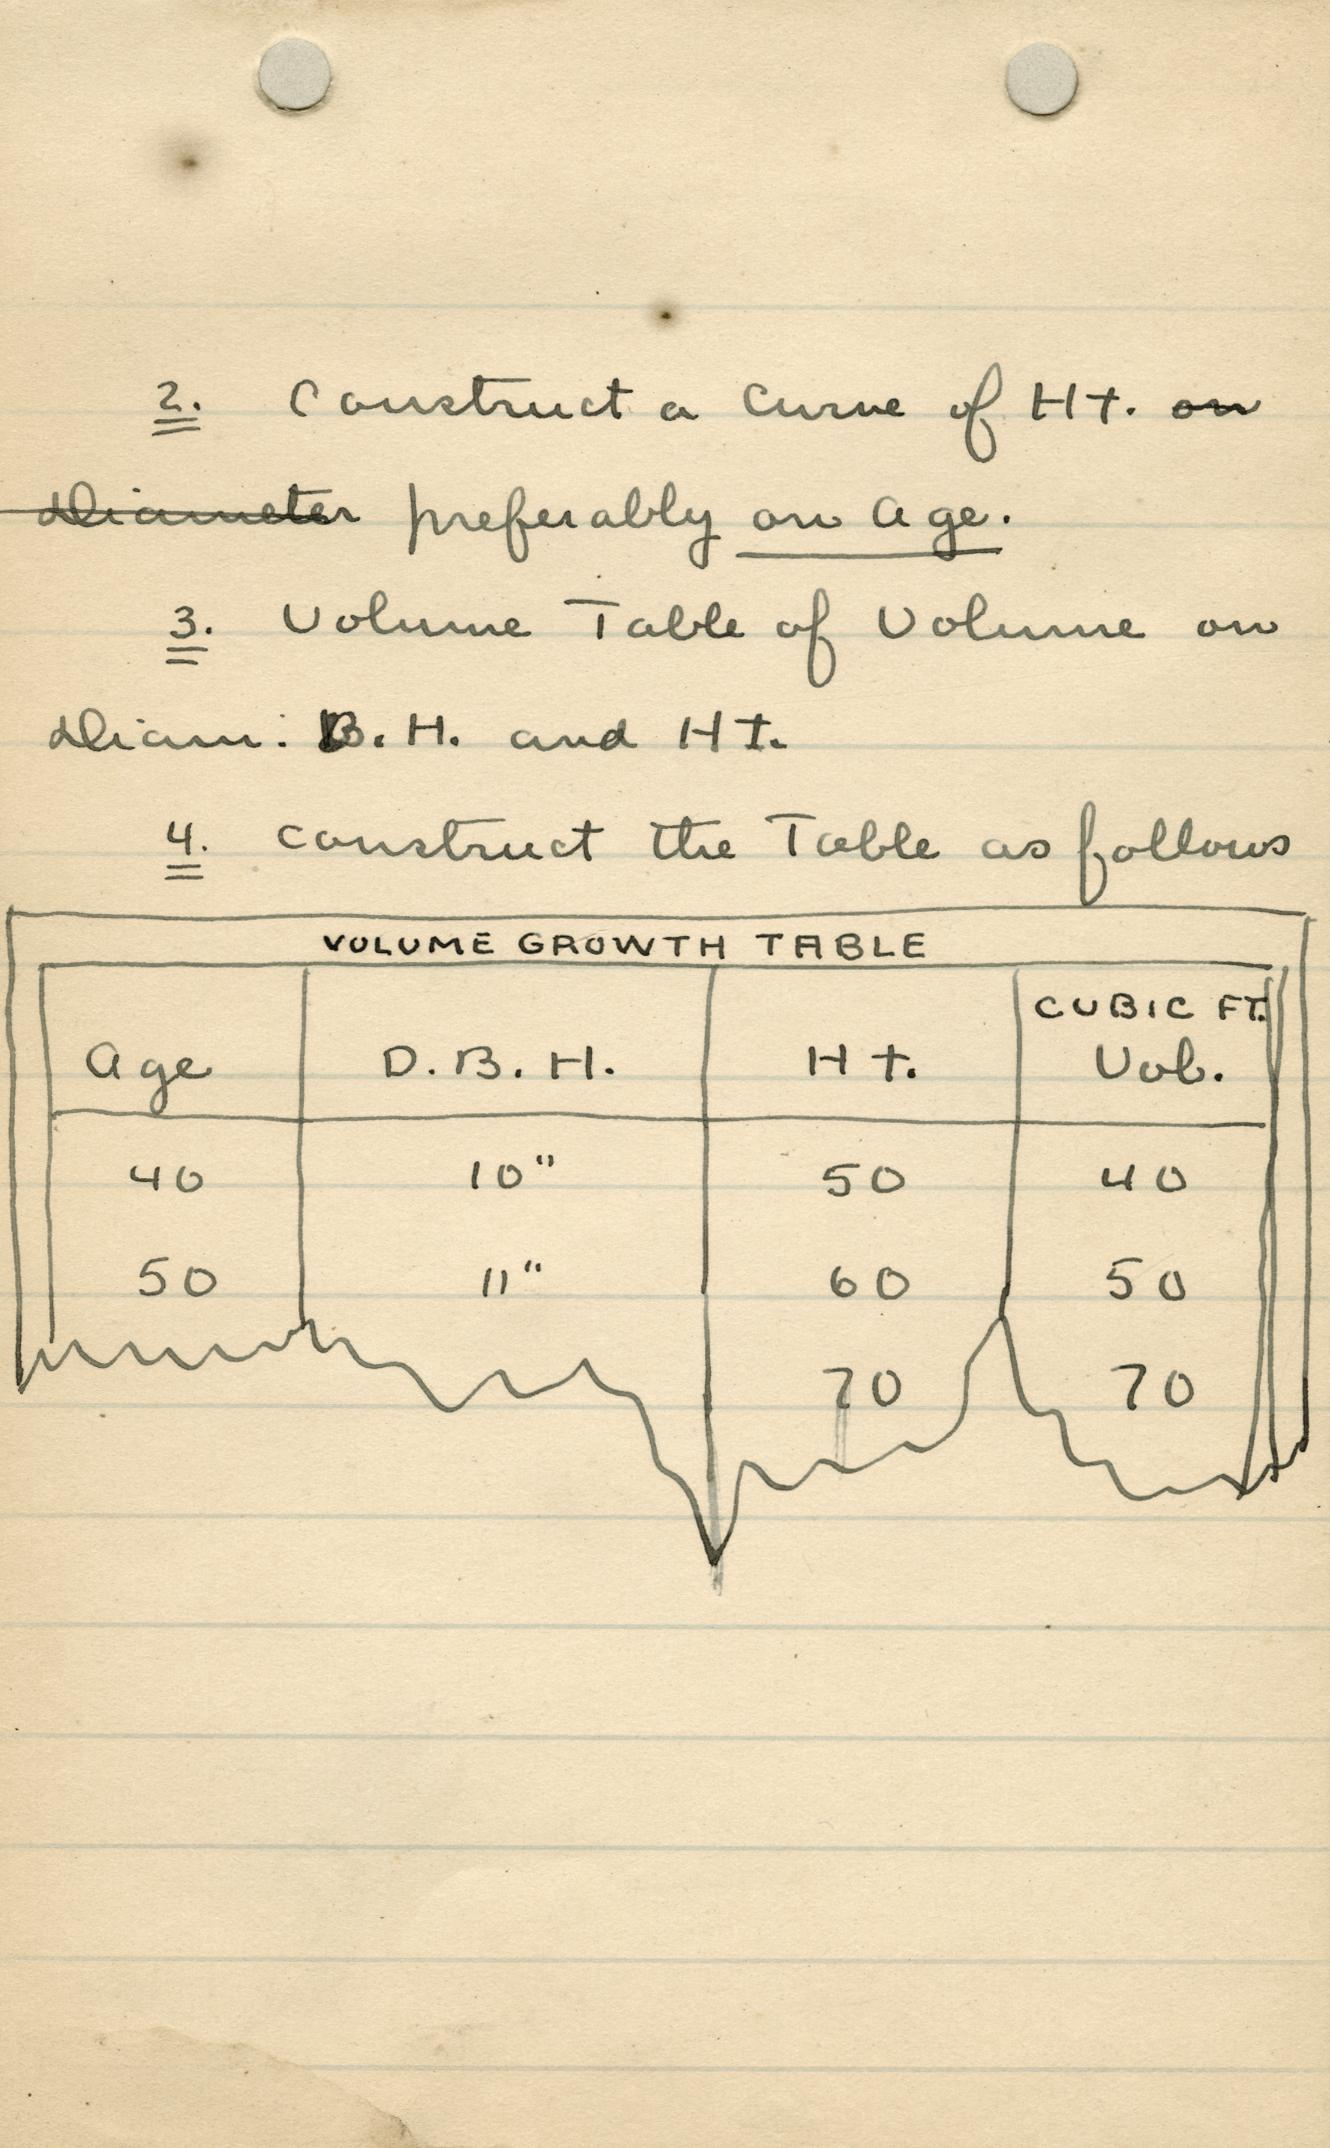 2. Construct a Curve of Ht. on
Diameter preferably on Age.
3. Volume Table of Volume on
Diam: B.H. and Ht.
4. Construct the Table as follows
VOLUME GROWTH TABLE
Age D.B.H. Ht. CUBIC FT. Vol.
40 10" 50 40
50 11" 60 50
70 70